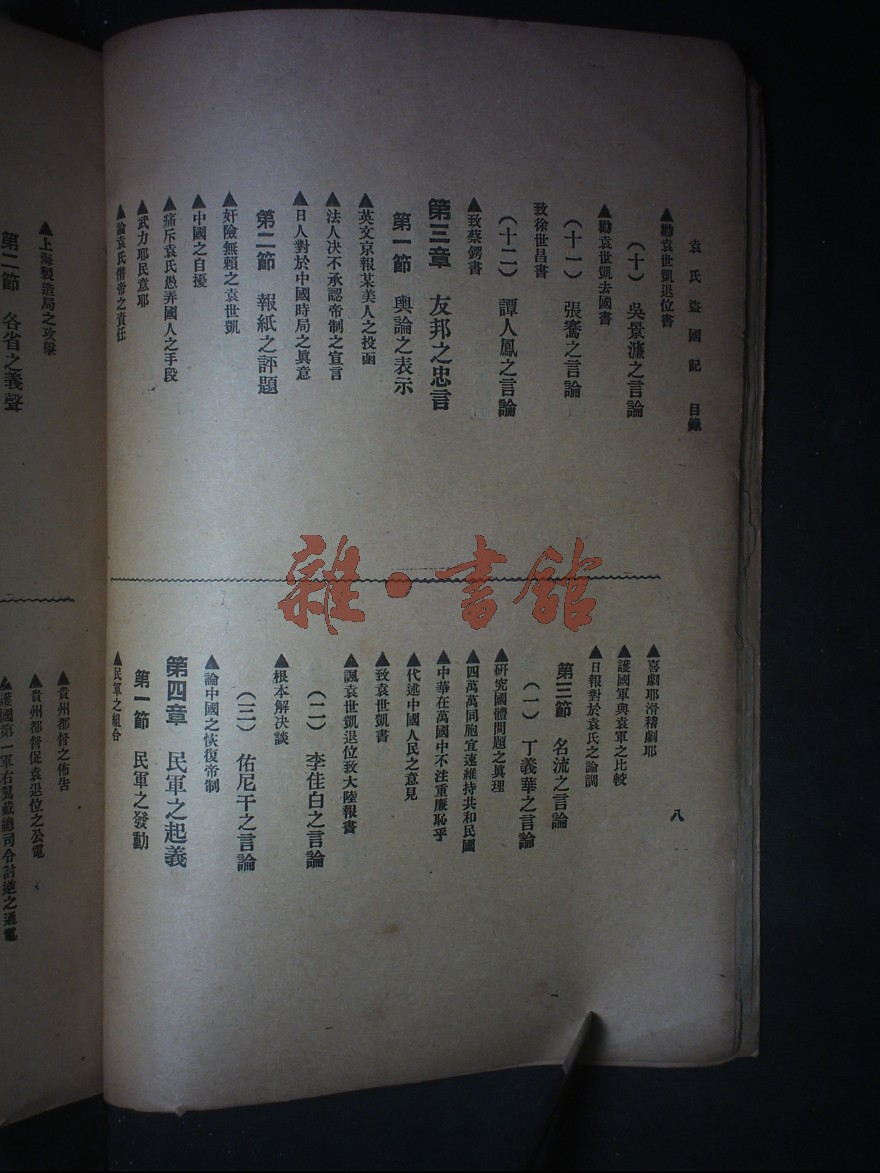 袁氏盜國記 目錄
八
▲勸袁世凱退位書
(十) 吳景濂之言論
▲勸袁世凱去國書
(十一) 張謇之言論
致徐世昌書
(十二) 譚人鳳之言論
▲致蔡鍔書
第三章 友邦之忠言
第一節 輿論之表示
▲英文京報某美人之投函
▲法人決不承認帝制之宣言
▲日人對於中國時局之眞意
第二節 報紙之評題
▲奸險無賴之袁世凱
▲中國之自擾
▲痛斥袁氏愚弄國人之手段
▲武力耶民意耶
▲論袁氏僭帝之責任
▲喜劇耶滑稽劇耶
▲護國軍與袁軍之比較
▲日報對於袁氏之論調
第三節 名流之言論
(一) 丁義華之言論
▲研究國體問題之眞理
▲四萬萬同胞宜速維持共和民國
▲中華在萬國中不注重廉恥乎
▲代述中國人民之意見
▲致袁世凱書
▲諷袁世凱退位致大陸報書
(二) 李佳白之言論
▲根本解決談
(三) 佑尼干之言論
▲論中國之恢復帝制
第四章 民軍之起義
第一節 民軍之發動
▲民軍之組合
▲上海製造局之攻擊
第二節 各省之義聲
▲貴州都督之佈告
▲貴州都督促袁退位之公電
▲護國第一軍右翼戴總司令討逆之通電
雜·書館